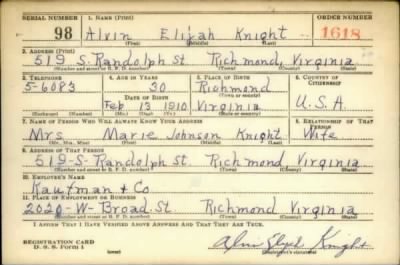 SERIAL NUMBER 1. NAME (Print) ORDER NUMBER
98 Alvin Elijah Knight 1618
(First) (Middle) (Last)
2. ADDRESS (Print)
519 S-Randolph St Richmond, Virginia
(Number and street or R. F. D. number) (Town) (County) (State)
3. TELEPHONE 4. AGE IN YEARS 5. PLACE OF BIRTH 6. COUNTRY OF CITIZENSHIP
5-6083 30 Richmond
(Town or county)
DATE OF BIRTH
Feb 13 1910 Virginia U.S.A.
(Mo.) (Day) (Yr.) (State or country)
7. NAME OF PERSON WHO WILL ALWAYS KNOW YOUR ADDRESS 8. RELATIONSHIP OF THAT PERSON
Mrs Marie Johnson Knight Wife
(Mr., Mrs., Miss) (First) (Middle) (Last)
9. ADDRESS OF THAT PERSON
519-S-Randolph St Richmond Virginia
(Number and street or R. F. D. number) (Town) (County) (State)
10. EMPLOYER'S NAME
Kaufman & Co
11. PLACE OF EMPLOYMENT OR BUSINESS
2020-W-Broad St. Richmond Virginia
(Number and street or R. F. D. number) (Town) (County) (State)
I AFFIRM THAT I HAVE VERIFIED ABOVE ANSWERS AND THAT THEY ARE TRUE.
REGISTRATION CARD
D. S. S. Form 1
Alvin Elijah Knight
(Registrant's signature)